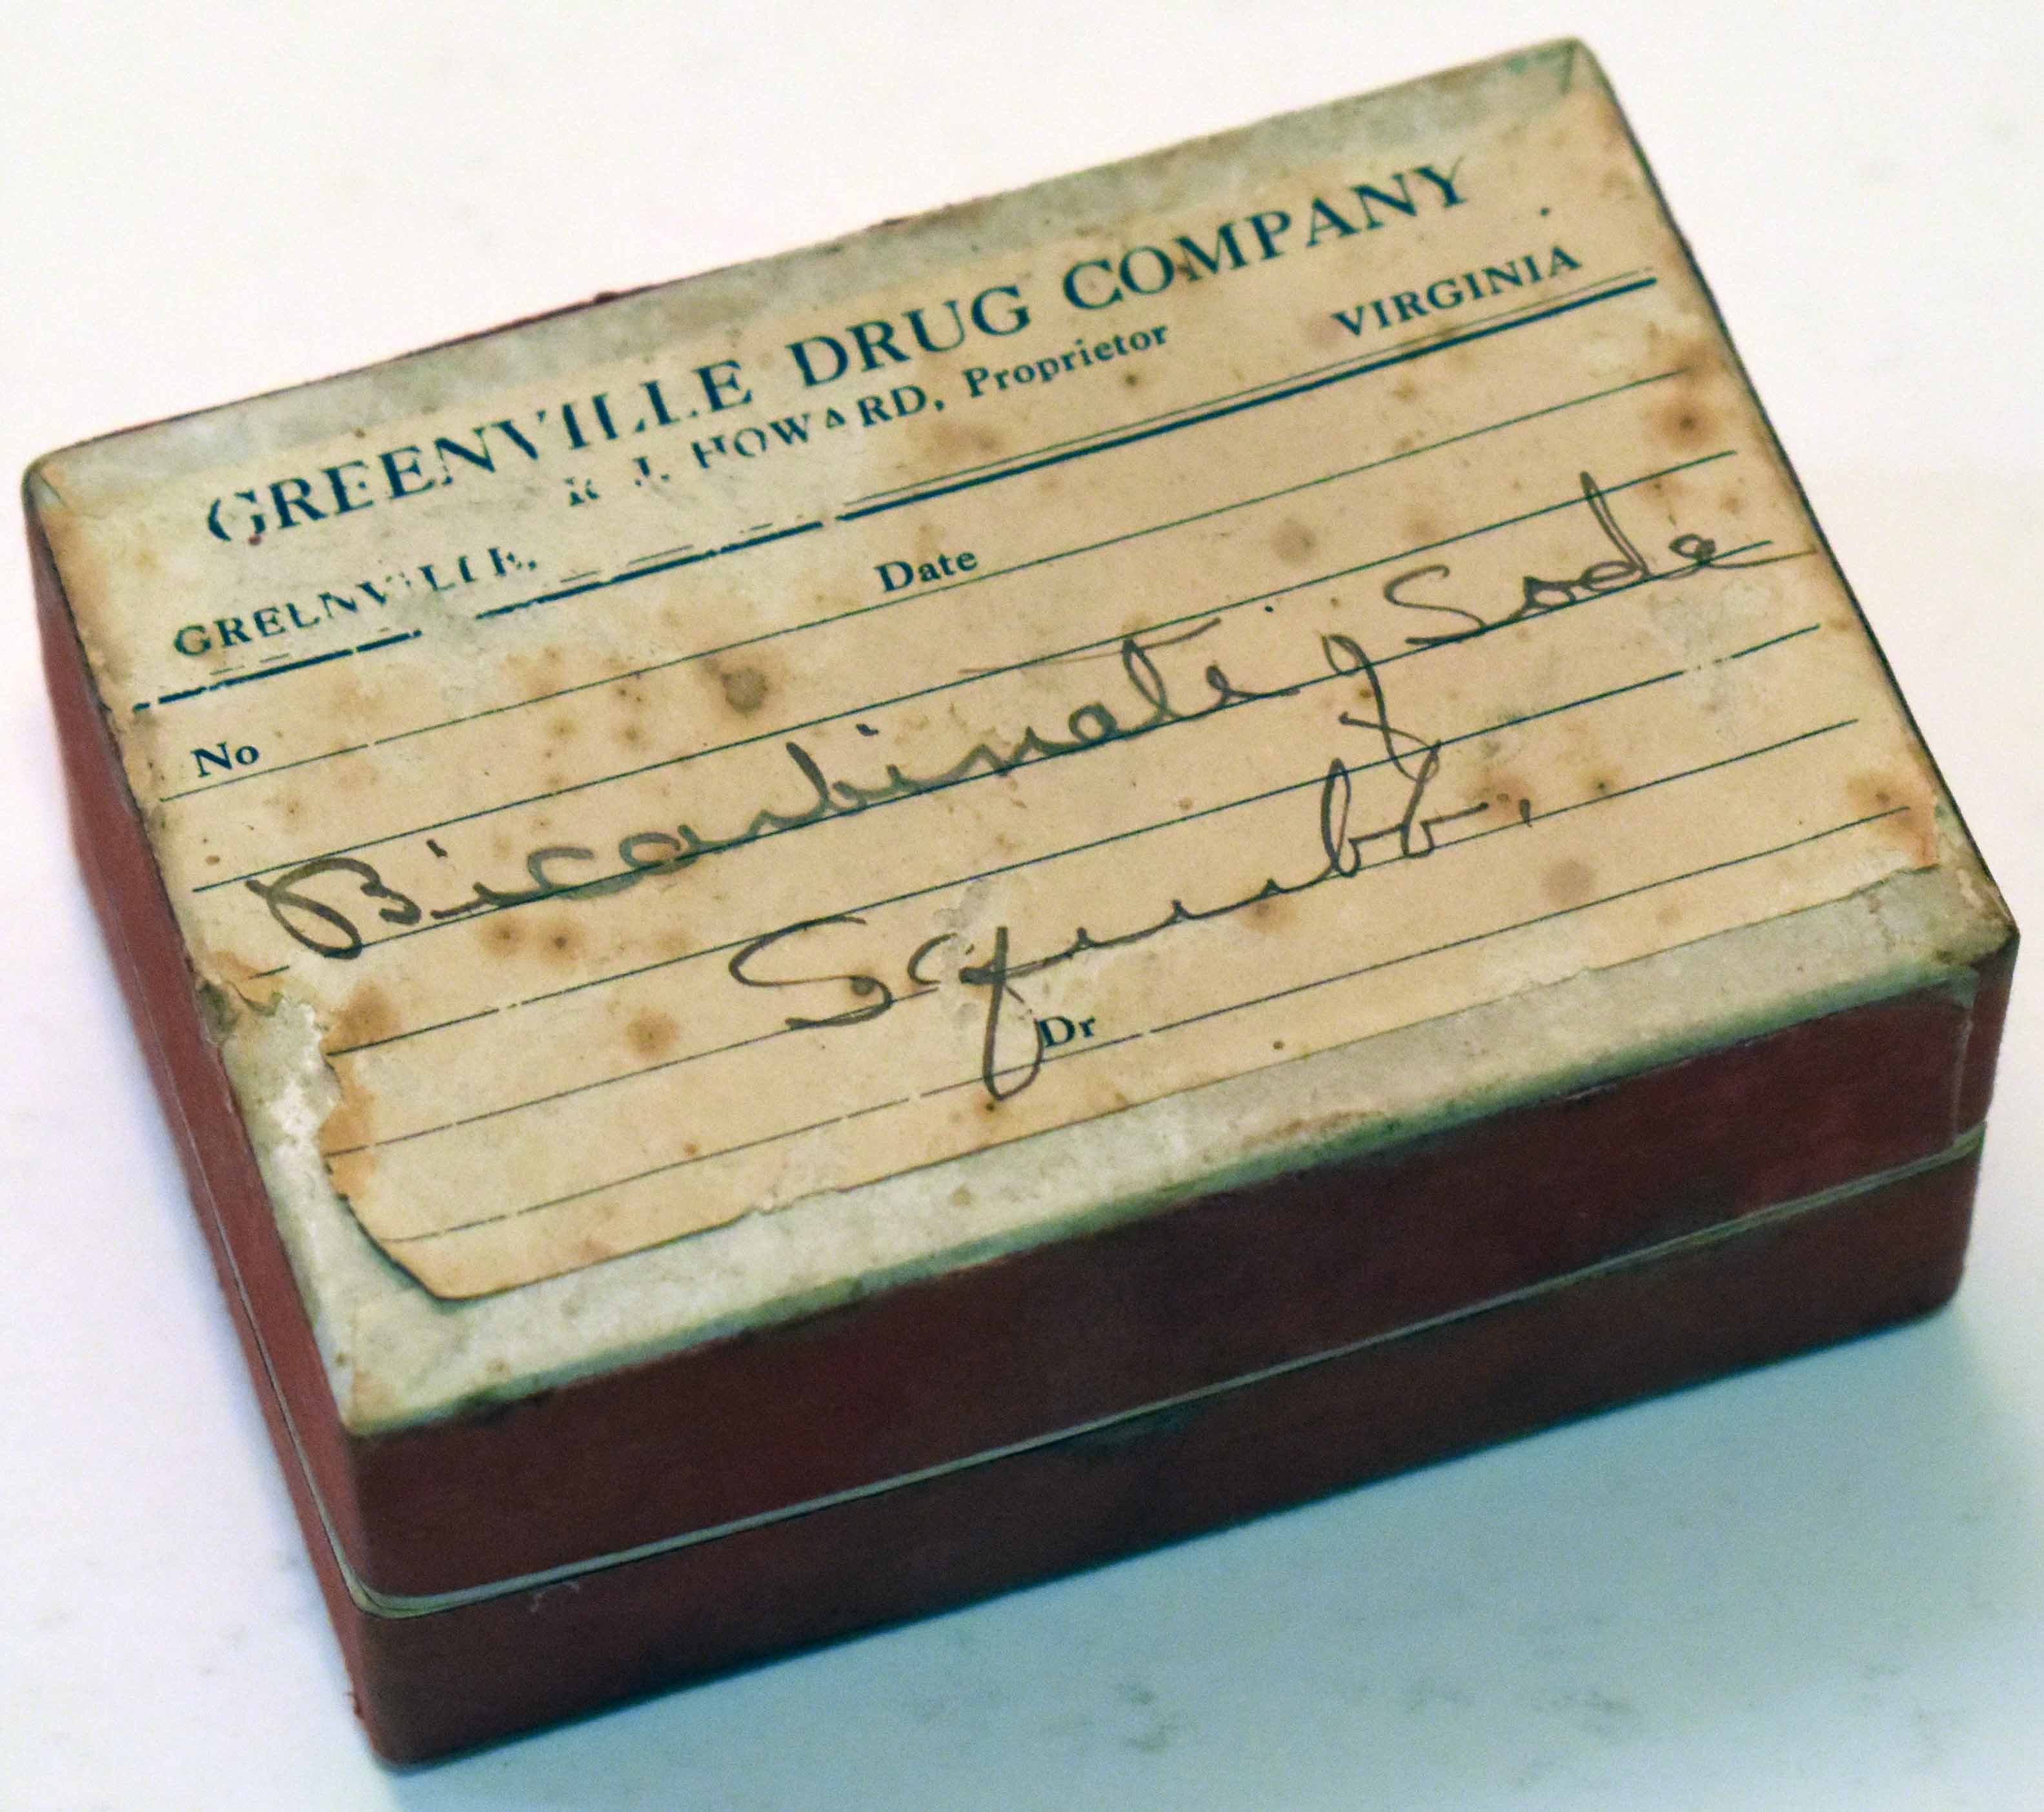 GREENVILLE DRUG COMPANY
R. J. HOWARD, Proprietor
GREENVILLE, VIRGINIA
No Date
Bicarbinate of Soda
Squibb.
Dr